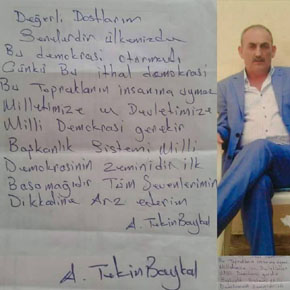 Değerli Dostlarım
Senelerdir ülkemizde
Bu demokrasi oturmadı
Çünkü Bu ithal demokrasi
Bu Toprakların insanına uymaz
Milletimize ve Devletimize
Milli Demokrasi gerekir
Başkanlık Sistemi Milli
Demokrasinin Zeminidir ilk
Basamağıdır Tüm Sevenlerimin
Dikkatine Arz ederim
A. Tekin Baykal
A. Tekin Baykal